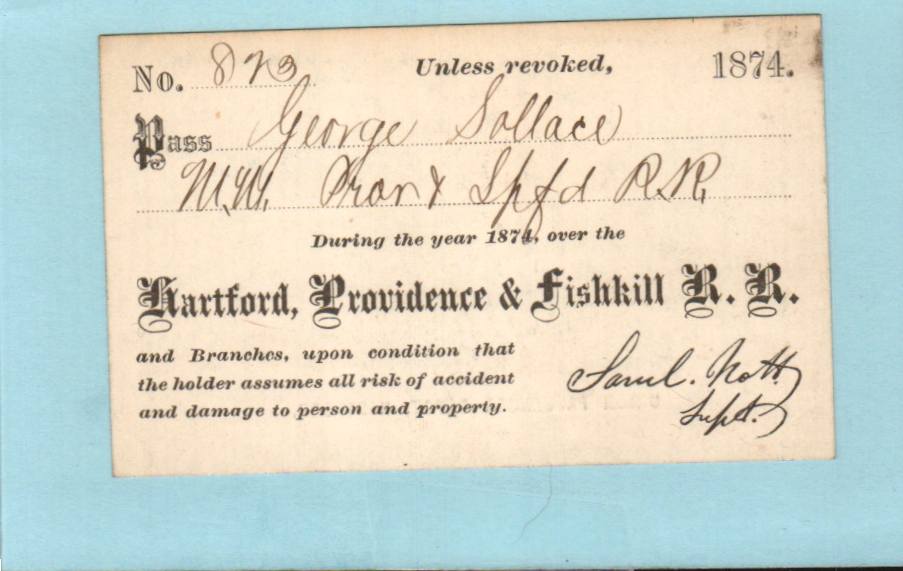 No. 823 Unless revoked, 1874.
Pass George Sollace
Spfd R.R.
During the year 1874, over the
Hartford, Providence & Fishkill R. R.
and Branches, upon condition that
the holder assumes all risk of accident
and damage to person and property.
Saml. Nott
Supt.